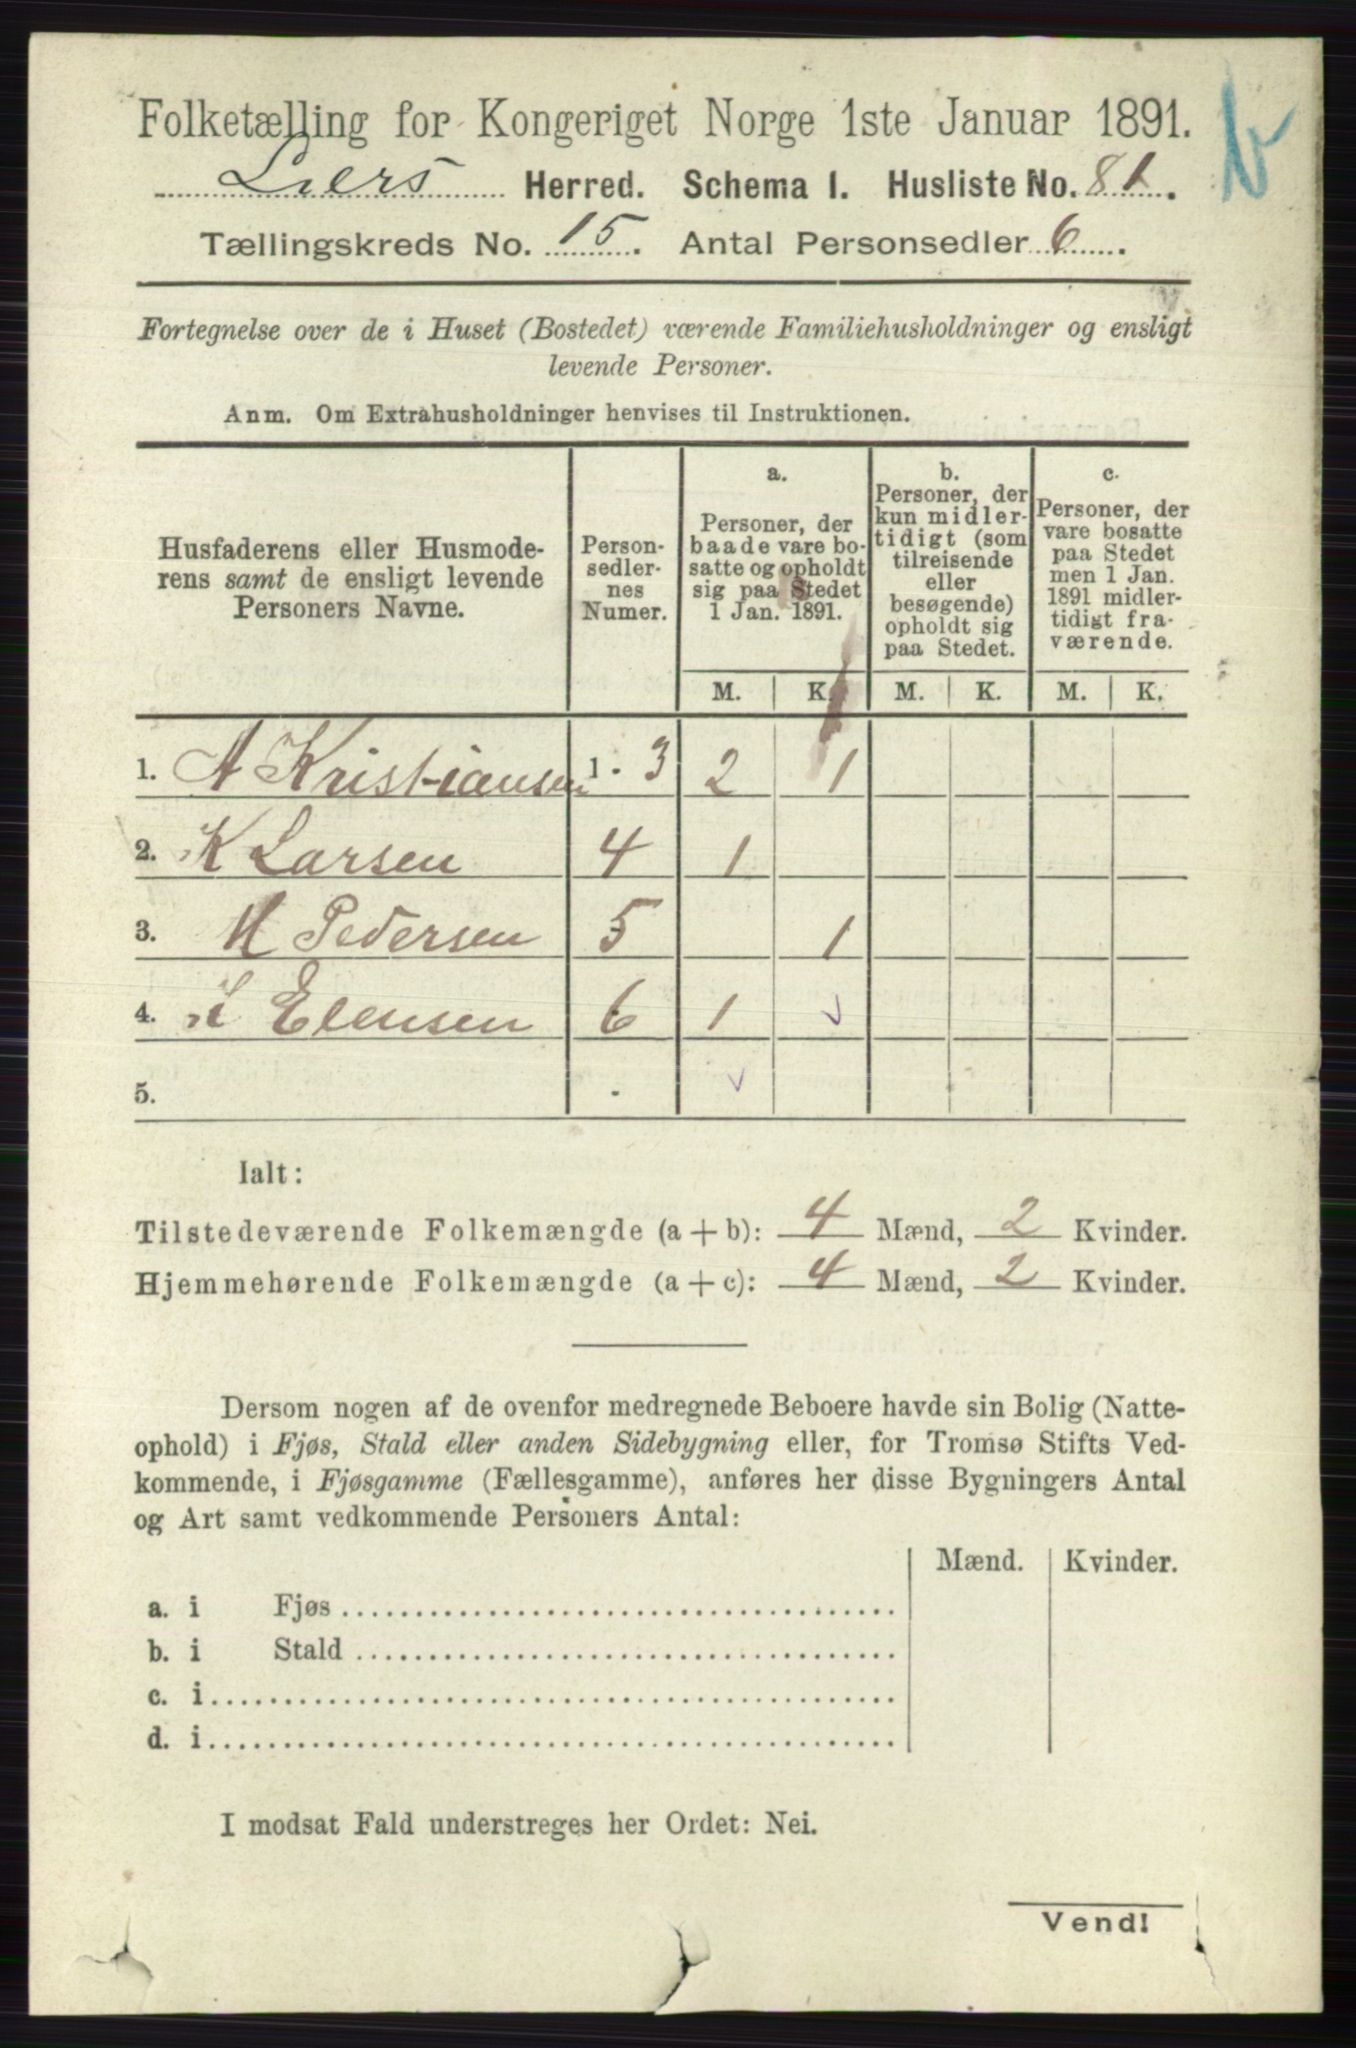 Folketælling for Kongeriget Norge 1ste Januar 1891.
Liers Herred. Schema 1. Husliste No. 81.
Tællingskreds No. 15. Antal Personsedler 6.
Fortegnelse over de i Huset (Bostedet) værende Familiehusholdninger og ensligt
levende Personer.
Anm. Om Extrahusholdninger henvises til Instruktionen.
Husfaderens eller Husmode-
rens samt de ensligt levende
Personers Navne.
Person-
sedler-
nes
Numer.
a.
Personer, der
baade vare bo-
satte og opholdt
sig paa Stedet
1 Jan. 1891.
b.
Personer, der
kun midler-
tidigt (som
tilreisende
eller
besøgende)
opholdt sig
paa Stedet.
c.
Personer, der
vare bosatte
paa Stedet
men 1 Jan.
1891 midler-
tidigt fra-
værende.
M. K. M. K. M. K.
1. A Kristiansen 1 - 3 2 1
2. K Larsen 4 1
3. M Pedersen 5 1
4. Elensen 6 1
5.
Ialt:
Tilstedeværende Folkemængde (a + b): 4 Mænd, 2 Kvinder.
Hjemmehørende Folkemængde (a + c): 4 Mænd, 2 Kvinder.
Dersom nogen af de ovenfor medregnede Beboere havde sin Bolig (Natte-
ophold) i Fjøs, Stald eller anden Sidebygning eller, for Tromsø Stifts Ved-
kommende, i Fjøsgamme (Fællesgamme), anføres her disse Bygningers Antal
og Art samt vedkommende Personers Antal:
Mænd. Kvinder.
a. i Fjøs
b. i Stald
c. i
d. i
I modsat Fald understreges her Ordet: Nei.
Vend!